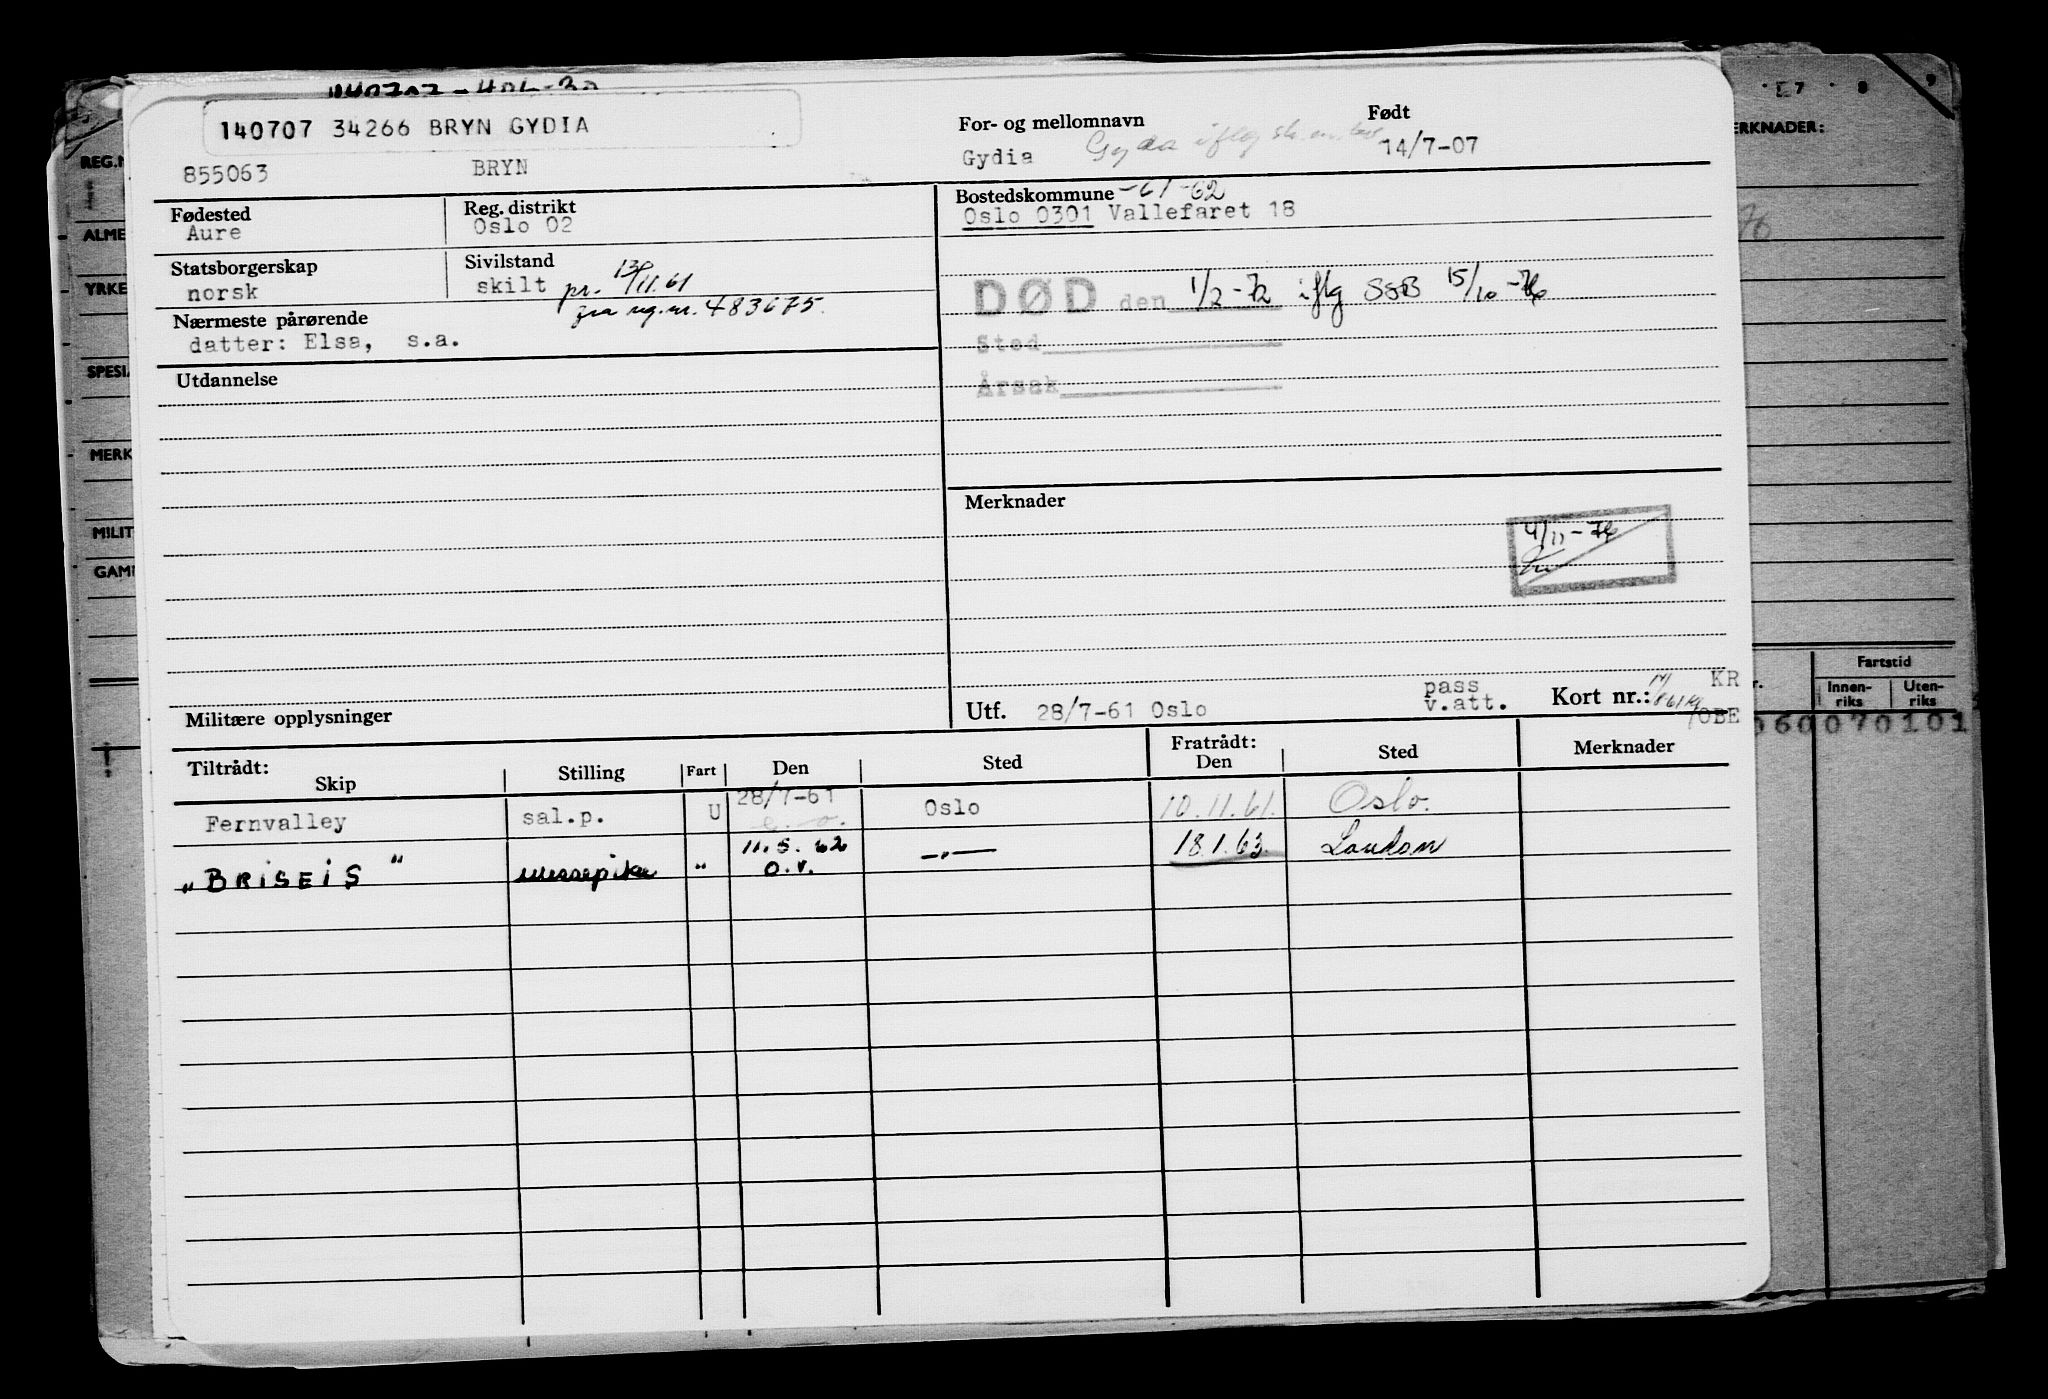 140707 34266 BRYN GYDIA
855063 BRYN
For- og mellomnavn
Gydia Gyda iflg
Født
14/7-07
Fødested
Aure
Reg. distrikt
Oslo 02
Bostedskommune -61 -62
Oslo 0301 Vallefaret 18
Statsborgerskap
norsk
Sivilstand
skilt pr. 13/11.61
fra rg.nr. 483675.
Nærmeste pårørende
datter: Elsa, s.a.
DØD den 1/2-72 iflg SSB 15/10-76
Sted
Årsak
Utdannelse
Merknader
4/11-76
Militære opplysninger
Utf. 28/7-61 Oslo
pass
v.att.
Kort nr.:
KR
OBE
Tiltrådt:
Skip Stilling Fart Den Sted
Fratrådt:
Den Sted Merknader
Fernvalley sal.p. U 28/7-61 Oslo 10.11.61. Oslo.
"BRISEIS" messepike " 11.5.62 —"— 18.1.63. London
o.v.
REG.N
ALME
YRKE
SPESIA
MERK
MILIT
GAM
7 8 9
ERKNADER:
76
Fartstid
r. Innen-
riks
Uten-
riks
060070101